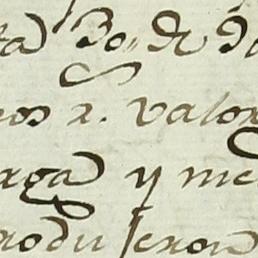 ta 30,, de
cos r. valor
arga y me
rodujeron